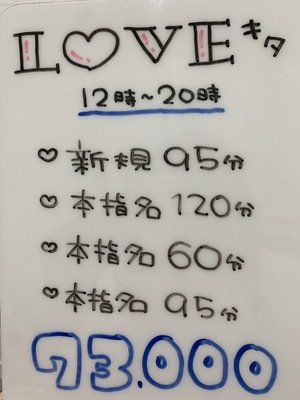 LOVE キタ
12時~20時
♡ 新規 95分
♡ 本指名 120分
♡ 本指名 60分
♡ 本指名 95分
73.000